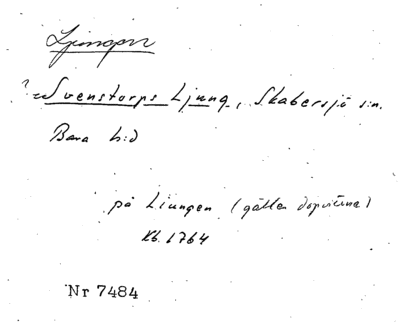 Ljungen
? = Svenstorps Ljung, Skabersjö sn.
Bara hd
på Liungen (gäller dopvittne)
Kb. 1764
Nr 7484